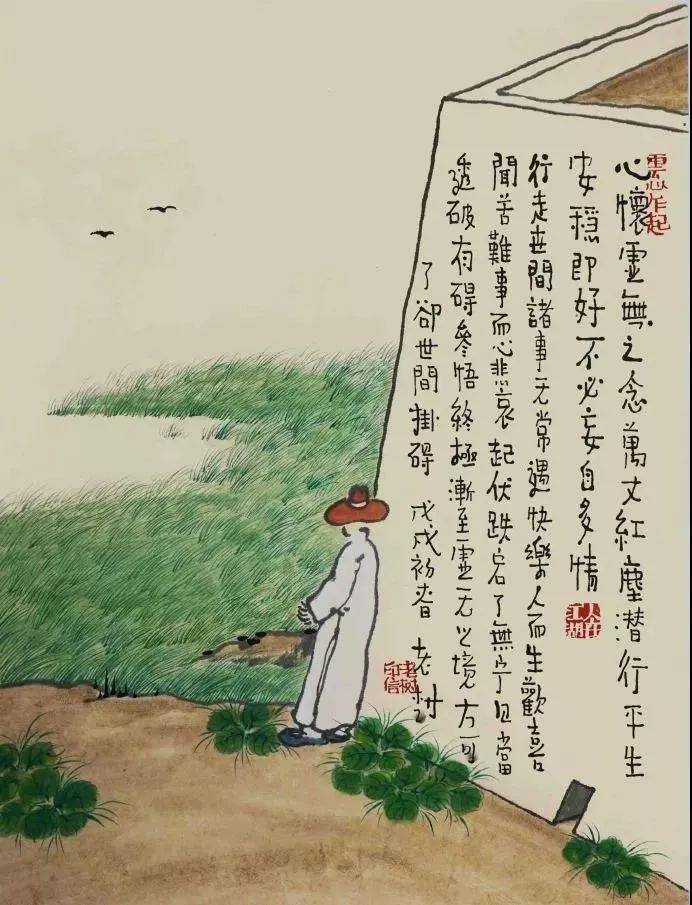 風心乍起
心懷虛無之念萬丈紅塵潜行平生
安穩即好不必妄自多情
人在江湖
行走世間諸事无常遇快樂人而生歡喜
聞苦難事而心悲哀起伏跌宕了無宁日當
透破有碍參悟終極漸至虛无之境方可
了卻世間掛碍 戊戌初春 老树
老树印信